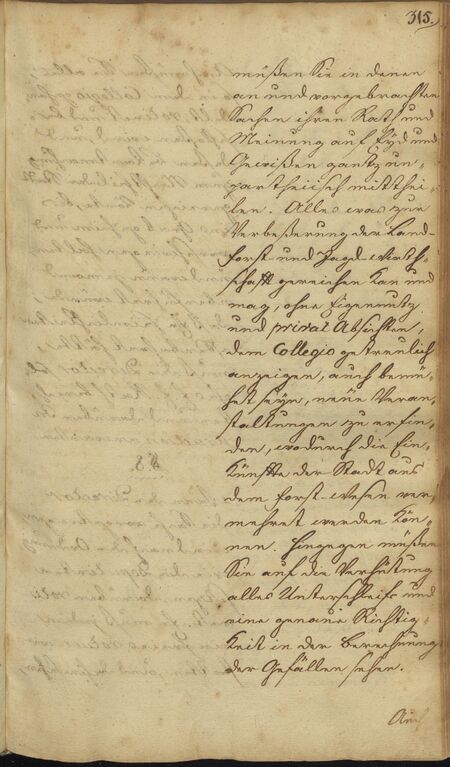 315.
müßen Sie in denen
an und vorgebrachten
Sachen ihren Rath und
Meinung auf Eyd und
Gewißen gantz un-
partheiisch mitthei-
len. Alles was zur
Verbeßerung der Land-
forst- und Jagd-wirth-
schafft gereichen kan und
mag, ohne Eigennutz
und privat Absichten,
dem Collegio getreulich
anzeigen, auch bemü-
het seyn, neue Veran-
staltungen zu erfin-
den, wodurch die Ein-
künffte der Stadt aus
dem forst-wesen ver-
mehret werden kön-
nen. Hingegen müßen
Sie auf die Verhütung
alles Unterschleifs und
eine genaue Richtig-
keit in der Berechnung
der Gefällen sehen.